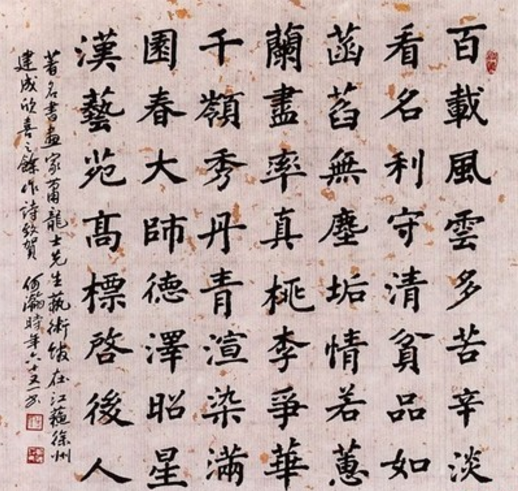 百載風雲多苦辛淡
看名利守清貧品如
菡萏無塵垢情若蕙
蘭盡率真桃李爭華
千嶺秀丹青渲染滿
園春大師德澤昭星
漢藝苑高標啓後人
著名書畫家蕭龍士先生藝術館在江蘇徐州
建成欣喜之餘作詩致賀 何瀚時年六十五歲